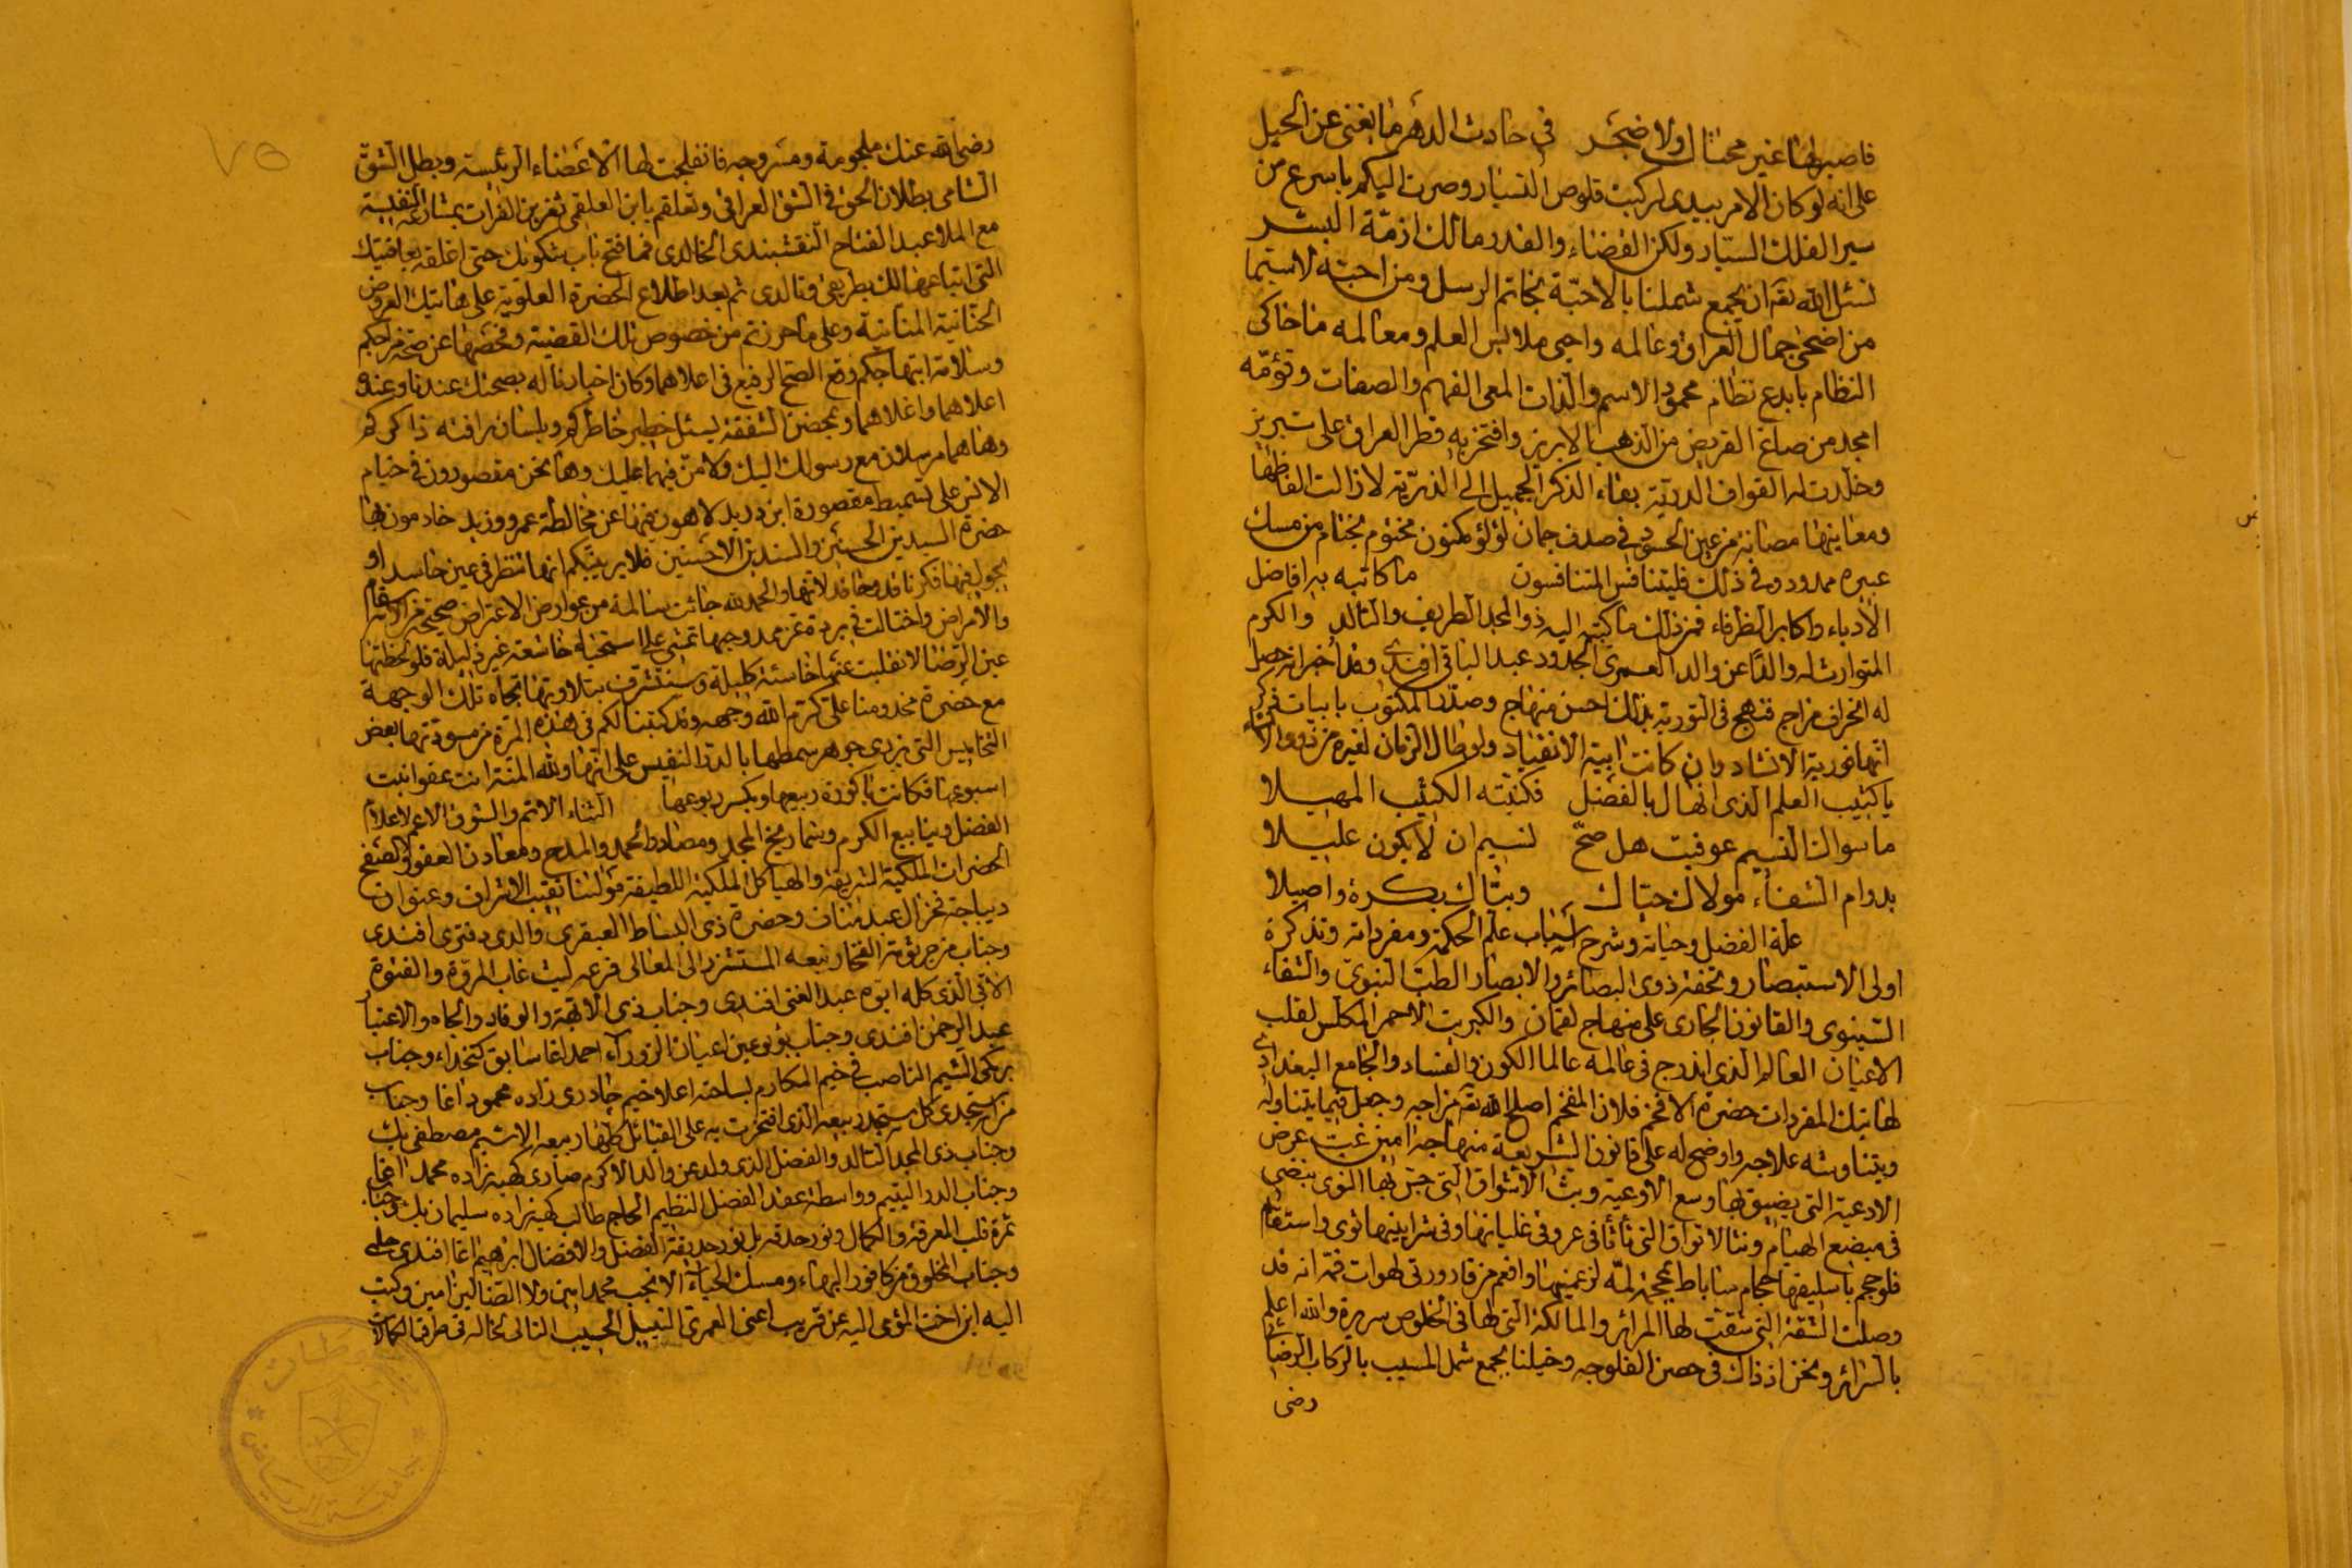 فاصبر لها غير محتال ولا ضجر في حادث الدهر ما يغني عن الحيل
على انه لو كان الامر بيدى لركبت قلوص التسيار وصرت اليكم باسرع من
سير الفلك السيار ولكن القضاء والقدر مالك ازمّة البشر
نسئل الله تع ان يجمع شملنا بالاحبّة بخاتم الرسل ومن احبّه لاسيما
من اضحى جمال العراق وعالمه واحيى ملابس العلم ومعالمه ما حاكى
النظام بابدع نظام محمود الاسم والذات المعى الفهم والصفات وتؤمّه
امجد من صاغ القريض من الذهب الابريز وافتخر به قطر العراق على تبريز
وخلّدت له القواف الدريّة بقاء الذكر الجميل الى الذريّة لا زالت الفاظها
ومعانيها مصانة من عين الحسود في صدف جمان لؤلؤ مكنون مختوم بختام من مسك
عبيره ممدود وفي ذلك فليتنافس المتنافسون ما كاتبه به افاضل
الادباء واكابر الظرفاء فمن ذلك ما كتبه اليه ذو المجد الطريف والتالد والكرم
المتوارث له والدًا عن والد العمرى الجدود عبد الباقي افندى وقد اخبر انه حصل
له انحراف مزاج فنهج فى التورية بذلك احسن منهاج وصدّر المكتوب بابيات
انها فورية الانشاد وان كانت ابية الانقياد ولو طال الزمان لغيره من ذوى
يا كثيب العلم الذى انهال بالفضل فكنته الكثيب المهيلا
ما سوالك النسيم عوفيت هل صحّ لنسيم ان لا يكون عليلا
بدوام الشفاء مولاك حيّاك وبيّاك بكرة واصيلا
علة الفضل وحياته وشرح اسباب علم الحكمة ومفرداته وتذكرة
اولى الاستبصار وتحفة ذوى البصائر والابصار الطب النبوىّ والشفاء
السينوى والقانون الجارى على منهاج لقمان والكبريت الاحمر المكلس لقلب
الاعيان العالم الذى اندرج فى عالمه عالما الكون والفساد والجامع البغدادى
لهاتيك المفردات حضرة الافخم فلان المفخم اصلح الله تع مزاجه وجعل فيما يتناوله
ويتناوشه علاجه واوضح له على قانون الشريعة منهاجه امين غبّ عرض
الادعية التى يضيق بها وسع الاوعية وبثّ الاشواق التى جسّ بها النوى بنضى
في مبضع الهيام ونثّ الاتواق التى تأتأ فى عروق غليانها وفى شرايينها توى واستقام
فلو حجم باسليقها حجام ساباط بمحجمة لمّه لزعمنها وافعم من قارورتى لهوات فمه انه قد
وصلت الشقة التى شقّت لها المرائر والمالكة التى لها فى الخلوص سريرة والله اعلم
بالسرائر ونحن اذ ذاك فى حصن الفلوجه وخيلنا بجمع شمل المسيب بالركاب الرضا
رضى
٧٥
رضى الله عنك ملجومة ومسروجه فانفلجت لها الاعضاء الرئيسة وبطل الشقّ
الشامى بطلان الحق فى الشق العراقى وتعلقم بابن العلقمى ثغر بن الفرات بمشارعه النفيسة
مع الملا عبد الفتاح النقشبندى الخالدى فما فتح باب شكواك حتى اغلقه بعافيتك
التى ابتاعها لك بطريفى وتالدى ثم بعد اطلاع الحضرة العلوية على هاتيك العروض
الحنانية المنانية وعلى ما حررتم من خصوص تلك القضية وفحصها عن صحة مزاجكم
وسلامة ابتهاجكم وقع الصح الرفيع فى اعلاهما وكان اخبارنا له بصحتك عندنا وعنده
اعلاهما واغلاهما وبمحض الشفقة يسئل خطير خاطركم وبلسان رافته ذاكركم
وها هما مرسلان مع رسولك اليك ولا منّ فيهما عليك وها نحن مقصورون فى خيام
الانس على تسميط مقصورة ابن دريد لاهون بها عن مخالطة عمرو وزيد خادمون بها
حضرة السيدين الحسنين والسندين الاحسنين فلا يريبكم انها تنظر في عين حاسد او
يجول فيها فكر ناقد لانها والحمد لله جائت سالمة من عوارض الاعتراض صحيحة من الاسقام
والامراض واختالت فى بردة عز ممدوحها تمشى على استحياء خاشعة غير ذليلة فلو لحظتها
عين الرضا لانقلبت عنها خاسئة كليلة وسنتشرف بتلاوتها تجاه تلك الوجهة
مع حضرة مخدومنا على كرم الله وجهه وقد كتبنا لكم فى هذه المرة من مسودتها بعض
التخاميس التى يزرى جوهر سمطها بالدر النفيس على انها ولله المنة اتت عفوا بنت
اسبوعها فكانت باكورة ربيعها وبكر ربوعها الثناء الاتم والشوق الاعم لاعلام
الفضل وينابيع الكرم وشماريخ المجد ومصادر الحمد والمدح ومعادن العفو والصفح
الحضرات الملكية الشريفة والهياكل الملكية اللطيفة مولانا نقيب الاشراف وعنوان
ديباجة فخر ال عبد مناف وحضرة ذى البساط العبقرى والدى دفترى افندى
وجناب من جرثومة الفخار نبعه المستشرف الى المعالى فرعه ليث غاب المروة والفتوة
الاتى الذى كله ابوه عبد الغنى افندى وجناب ذى الابهة والوقار والجاه والاعتبار
عبد الرحمن افندى وجناب بؤبؤ عين اعيان الزوراء احمد اغا سابق كتخداء وجناب
بركى الشيم الناصب فى خيم المكارم بساحته اعلا خيم جادرى زاده محمود اغا وجناب
من يستجدى كل مستجد ربيعه الذى افتخرت به على القبائل كلها ربيعه الاشيم مصطفى بك
وجناب ذى المجد التالد والفضل الذى ولد عن والد الاكرم صارى كهيه زاده محمد اغا
وجناب الدر اليتيم وواسطة عقد الفضل النظيم الحاج طالب كهيه زاده سليمان بك وجناب
ثمرة قلب المعرفة والكمال ونور حدقة بل نور حديقة الفضل والافضال ابرهيم اغا افندى
وجناب المخلوق من كافور البهاء ومسك الحياء الانجب محمد امين ولا الضالين امين وكتب
اليه ابن اخت المؤمى اليه عن قريب اعنى العمرى النبيل الحسيب التالى لخاله فى طرق الكمالات
مخطوطات
جامعة الرياض